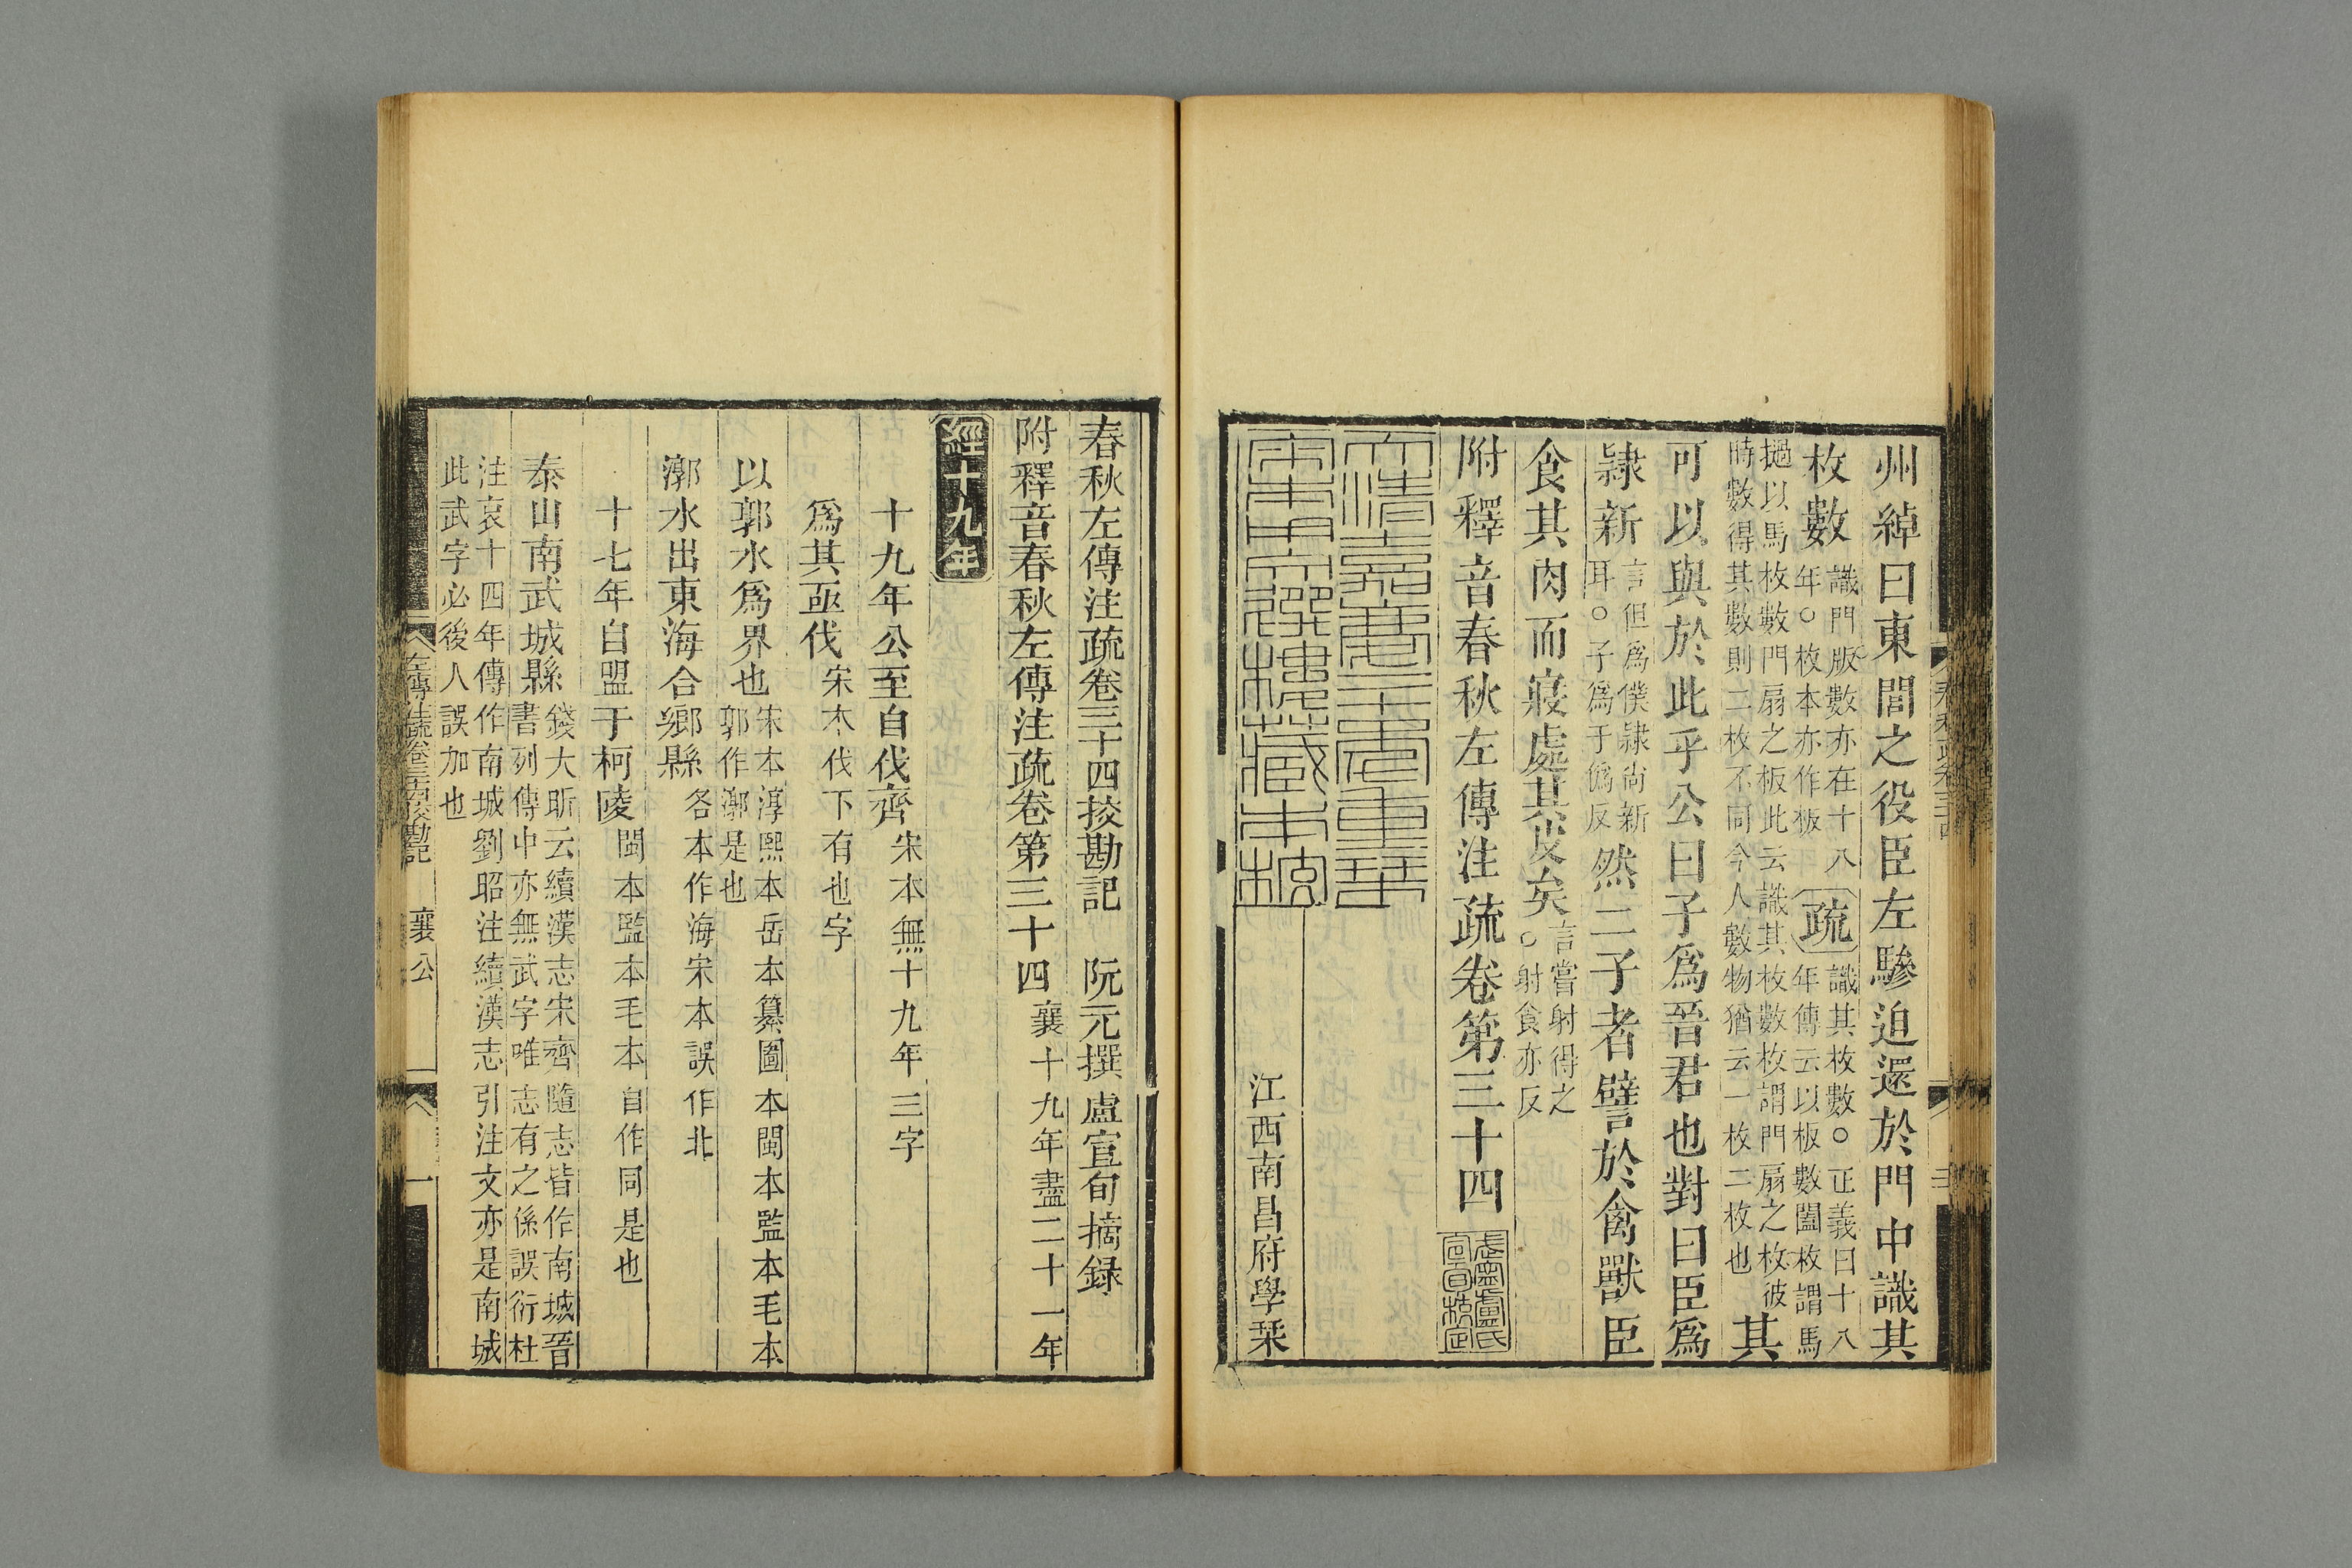 州綽曰東閭之役臣左驂迫還於門中識其
枚數識門版數亦在十八
年○枚本亦作板疏識其枚數○正義曰十八
年傳云以板數闔枚謂馬
撾以馬枚數門扇之板此云識其枚數枚謂門扇之枚彼
時數得其數則二枚不同今人數物猶云一枚二枚也其
可以與於此乎公曰子爲晉君也對曰臣爲
隷新言但爲僕隷尚新
耳○子爲于僞反然二子者譬於禽獸臣
食其肉而寢處其皮矣言嘗射得之
○射食亦反
附釋音春秋左傳注疏卷第三十四
大清嘉慶二十年重栞
宋本文選樓藏本校
江西南昌府學栞
春秋左傳注疏卷三十四挍勘記 阮元撰盧宣旬摘録
附釋音春秋左傳注疏卷第三十四襄十九年盡二十一年
經十九年
十九年公至自伐齊宋本無十九年三字
爲其亟伐宋本伐下有也字
以郭水爲界也宋本淳熙本岳本纂圖本閩本監本毛本
郭作漷是也
漷水出東海合鄉縣各本作海宋本誤作北
十七年自盟于柯陵閩本監本毛本自作同是也
泰山南武城縣錢大昕云續漢志宋齊隨志皆作南城晉
書列傳中亦無武字唯志有之係誤衍杜
注哀十四年傳作南城劉昭注續漢志引注文亦是南城
此武字必後人誤加也
左傳注疏卷三十四挍勘記 襄公 一